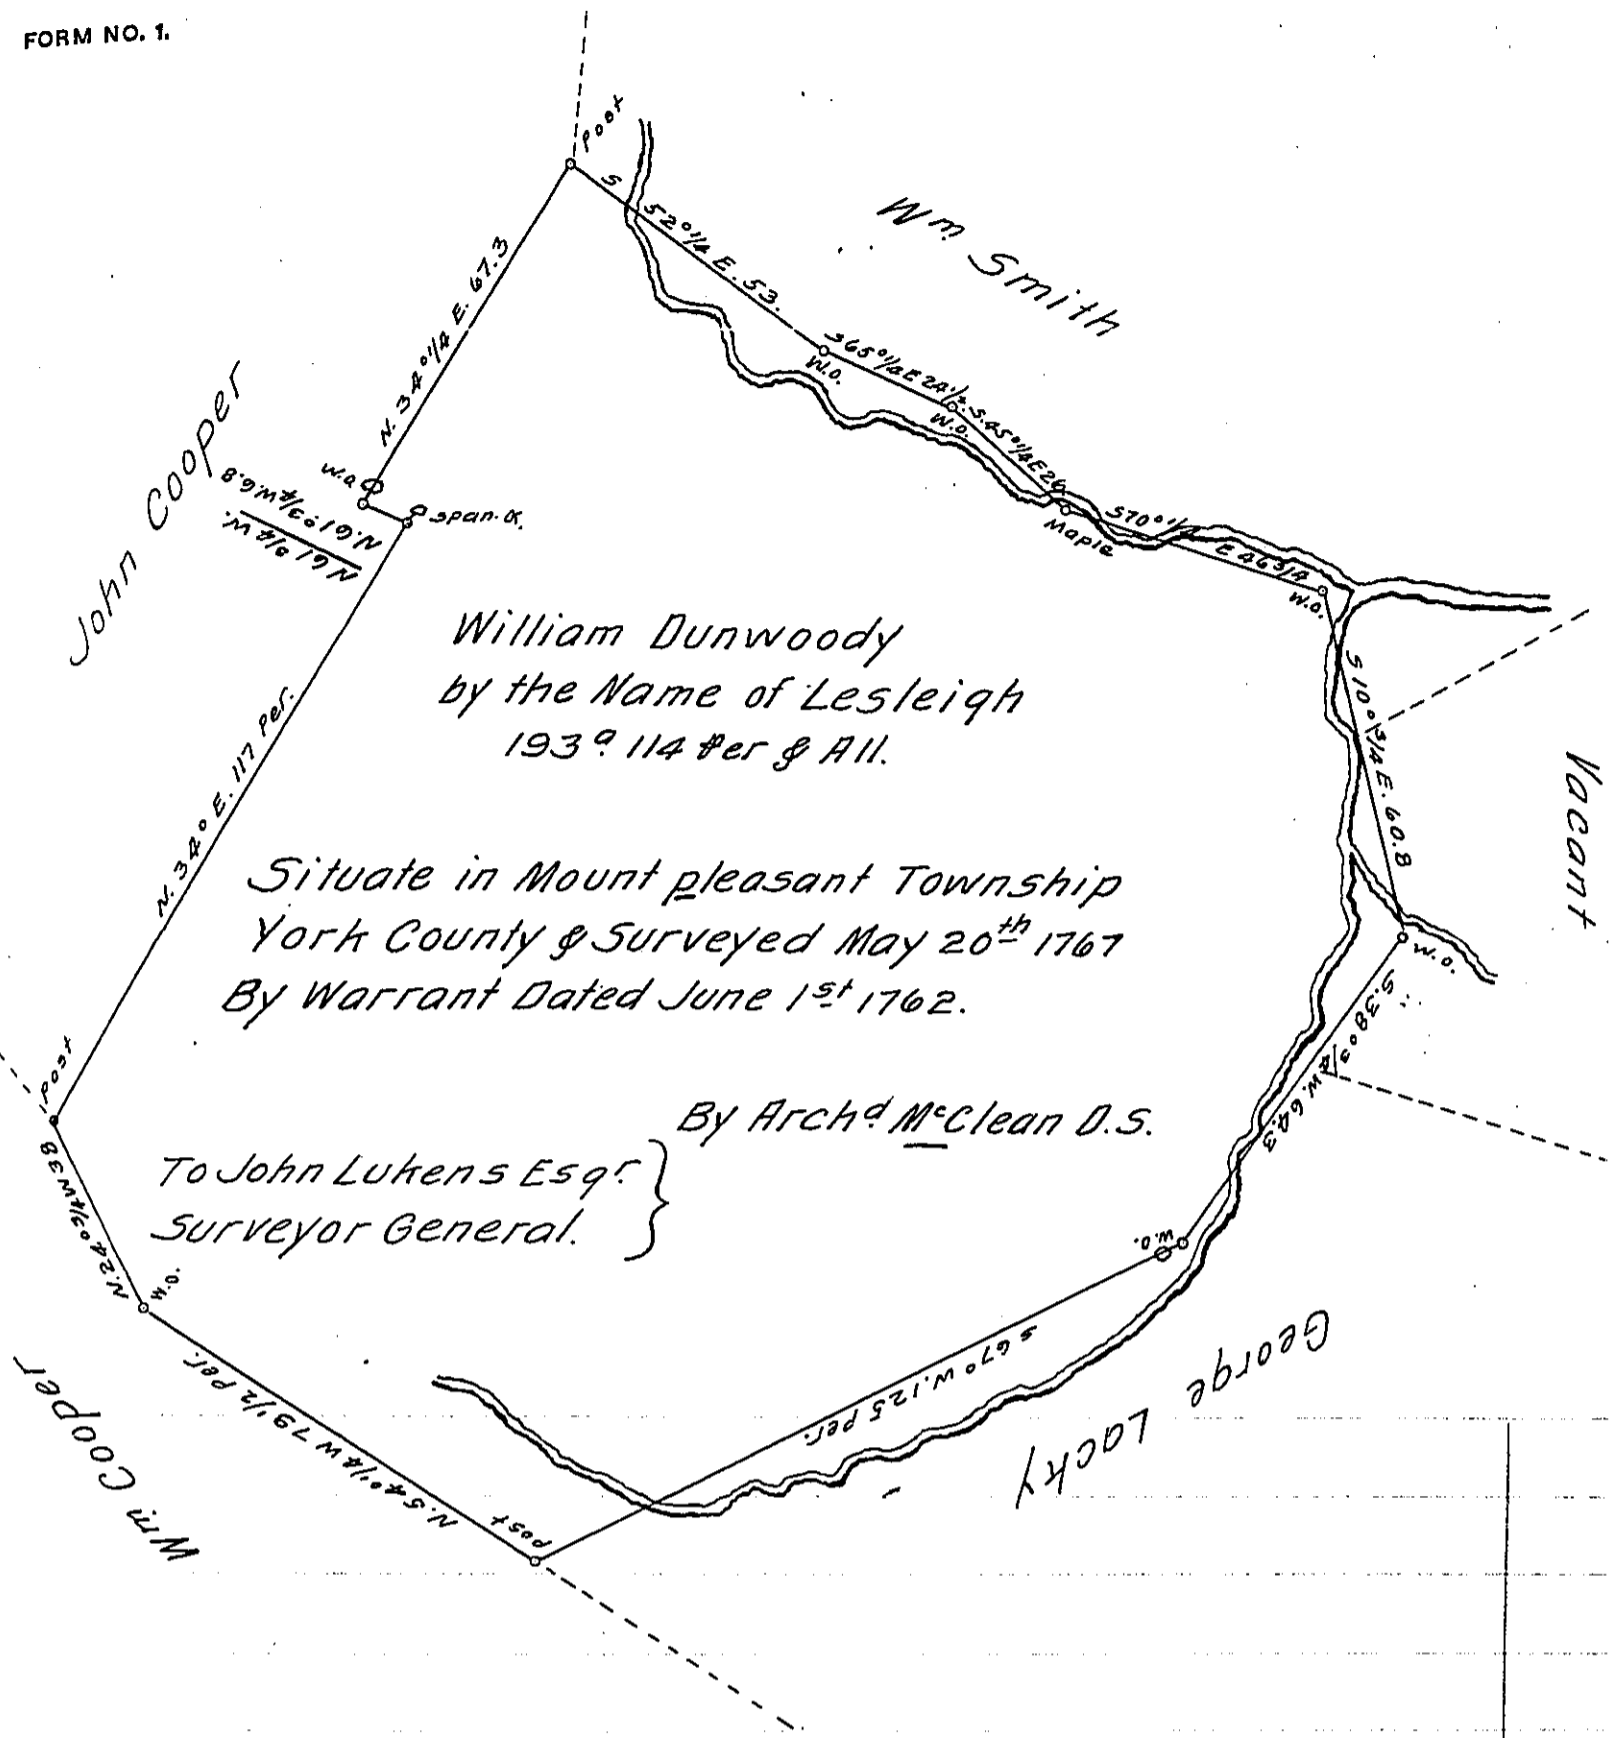 FORM NO. 1.
Post
S 52°1/4 E. 53.
Wm Smith
W.O.
S65°1/2 E 24 1/2.
W.O.
S.45°1/4 E 26
Maple
S70°1/2 E 46 3/4
W.O.
S 10°3/4 E. 60.8
Vacant
W.O.
S.38°3/4 W. 64.3
W.O.
George Lacky
S 67° W. 125 Per.
Post
N.54°1/4 W 79 1/2 Per.
Wm Cooper
W.O.
N.24°3/4 W 38
Post
N. 34° E. 117 Per.
Span. O.
N.61°3/4 W. 6.8
N 61 3/4 W.
W.O
N. 34°1/4 E. 67.3
John Cooper
William Dunwoody
by the Name of Lesleigh
193a 114 Per & All.
Situate in Mount pleasant Township
York County & Surveyed May 20th 1767
By Warrant Dated June 1st 1762.
By Archd McClean D.S.
To John Lukens Esqr.
Surveyor General.